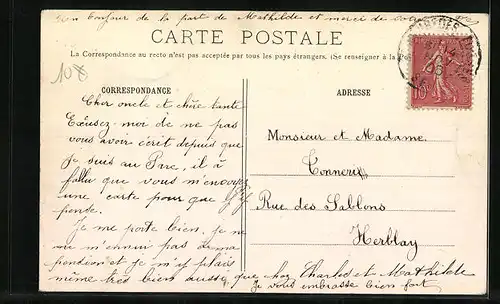 Bien Bonjour de la part de Mathilde et merci de votre carte
CARTE POSTALE
La Correspondance au recto n'est pas acceptée par tous les pays étrangers. (Se renseigner à la
10
CORRESPONDANCE
ADRESSE
Cher oncle et chère tante
Exéusez-moi de ne pas
vous avoir écrit depuis que
je suis au Parc, il à
fallu que vous m'envoyez
une carte pour que j'y
pense.
Je me porte bien, je ne
me m'ennui pas à ma
pension et je m'y plais
même très bien aussi que chez Charles et Mathilde
Je vous embrasse bien fort
Monsieur et Madame
Rue des Sablons
Herblay
10